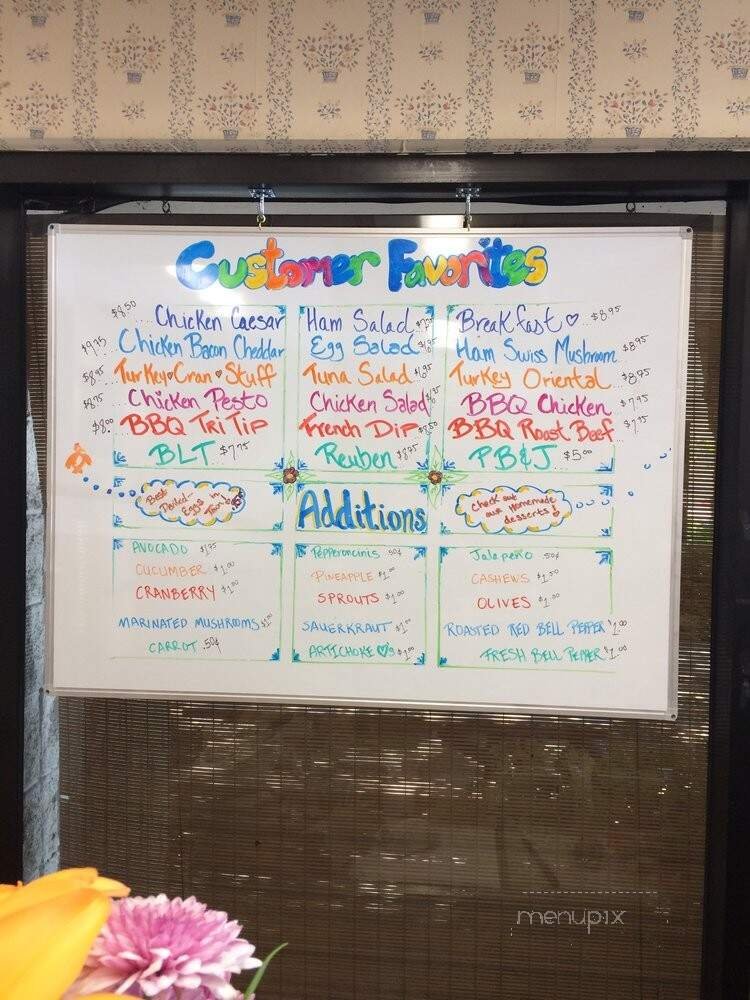 Customer Favorites
$8.50 Chicken Caesar
Chicken Bacon Cheddar
$8.95 Turkey Cran Stuff
$8.75 Chicken Pesto
$8.00 BBQ Tri Tip
BLT $7.75
Ham Salad
Egg Salad
Tuna Salad
Chicken Salad
French Dip
Reuben $8.75
Breakfast ♡ $8.95
Ham Swiss Mushroom $8.95
Turkey Oriental $8.95
BBQ Chicken $7.95
BBQ Roast Beef
PB&J $5.00
Best
Boiled
Eggs in
Town
Additions
Check out
our Homemade
desserts!
AVOCADO
CUCUMBER $1.00
CRANBERRY $1.00
MARINATED MUSHROOMS $1.00
CARROT .50¢
Pepperoncinis .50¢
PINEAPPLE $1.00
SPROUTS $1.00
SAUERKRAUT $1.00
ARTICHOKE ♡s $1.00
Jalapeño .50¢
CASHEWS $1.50
OLIVES $1.00
ROASTED RED BELL PEPPER $1.00
FRESH BELL PEPPER $1.00
menupix